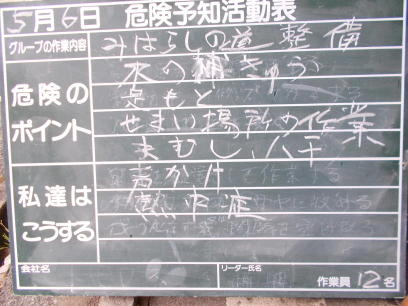 5月6日 危険予知活動表
グループの作業内容 みはらしの道 整備
水の補きゅう
危険のポイント 足もと
せまい場所の作業
まむし、ハチ
私達はこうする 声かけ
熱中症
会社名 リーダー氏名 作業員 12名